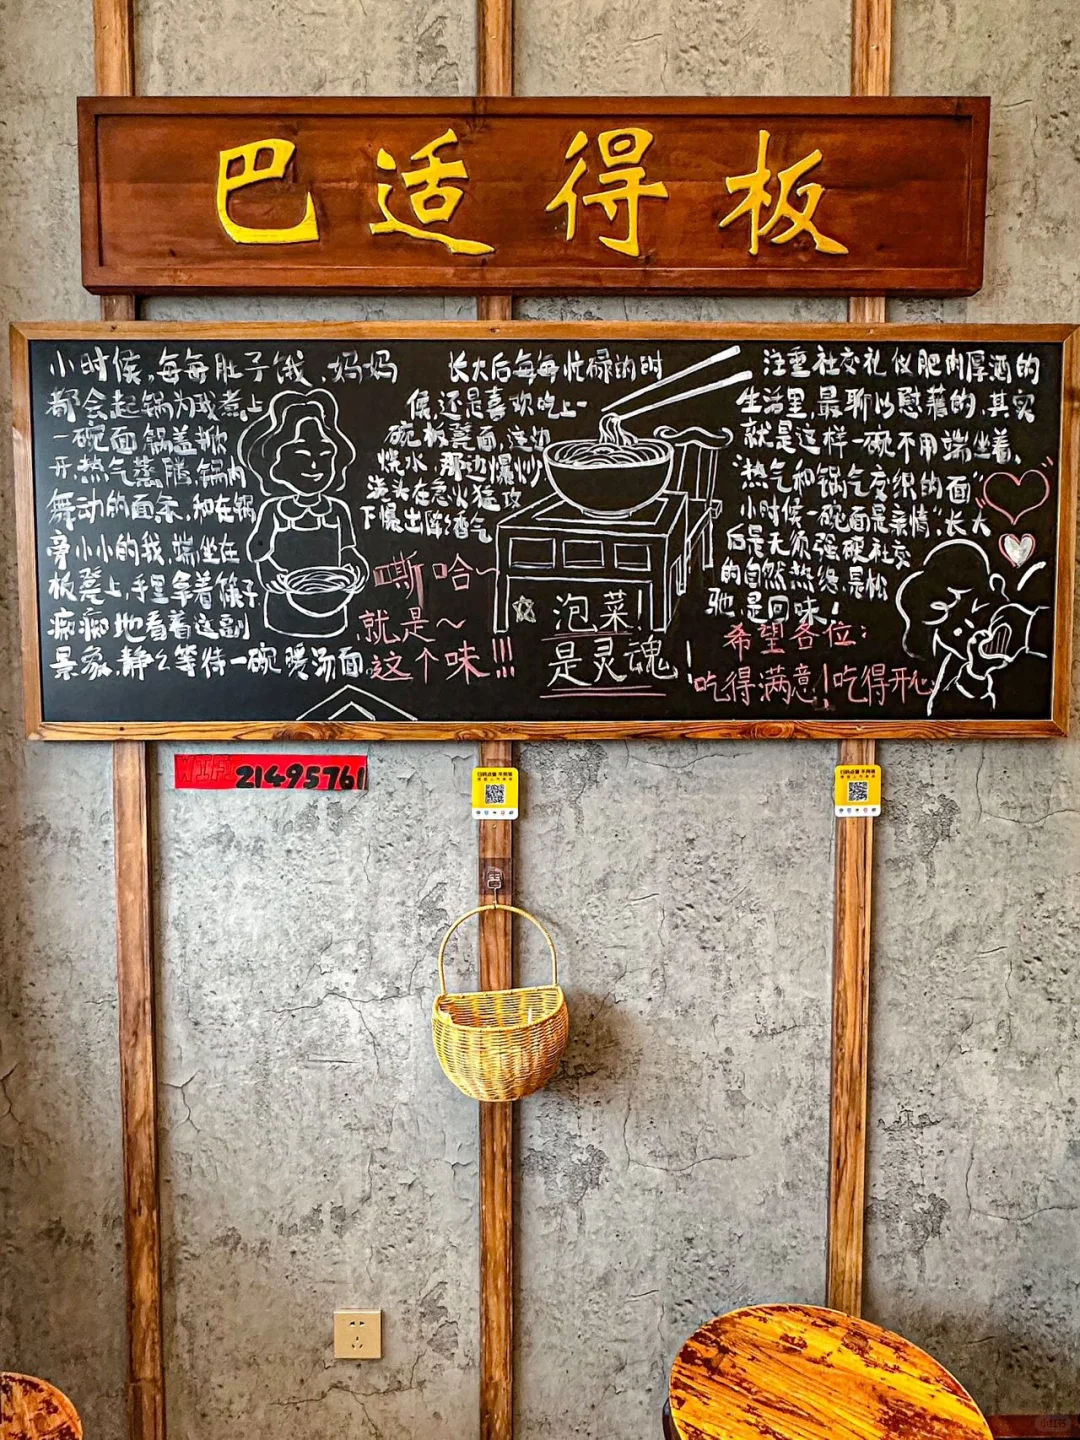 巴适得板
小时候,每每肚子饿,妈妈
都会起锅为我煮上
一碗面锅盖掀
开热气蒸腾,锅内
舞动的面条,和在锅
旁小小的我,端坐在
板凳上,手里拿着筷子
痴痴地看着这副
景象,静静等待一碗暖汤面.
长大后每每忙碌的时
候,还是喜欢吃上一
碗板凳面,这边
烧水,那边爆炒
浇头在急火猛攻
下爆出阵阵香气
嘶哈~
就是~
这个味!!!
泡菜!
是灵魂!
注重社交礼仪肥肉厚酒的
生活里,最聊以慰藉的,其实
就是这样一碗不用端坐着、
"热气和锅气交织的面"
小时候一碗面是亲情"长大
后是无须强硬社交
的自然热络,是松
驰,是回味!
希望各位:
吃得满意!吃得开心
WIFI 21495761
小红书